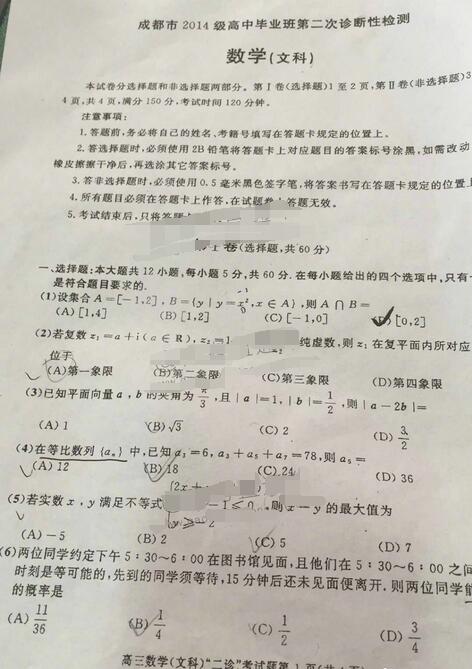 成都市2014级高中毕业班第二次诊断性检测
数学(文科)
本试卷分选择题和非选择题两部分。第Ⅰ卷(选择题)1至2页,第Ⅱ卷(非选择题)3
4页,共4页,满分150分,考试时间120分钟。
注意事项:
1.答题前,务必将自己的姓名、考籍号填写在答题卡规定的位置上。
2.答选择题时,必须使用2B铅笔将答题卡上对应题目的答案标号涂黑,如需改动
橡皮擦擦干净后,再选涂其它答案标号。
3.答非选择题时,必须使用0.5毫米黑色签字笔,将答案书写在答题卡规定的位置上
4.所有题目必须在答题卡上作答,在试题卷上答题无效。
5.考试结束后,只将答题
卷(选择题,共60分)
一、选择题:本大题共12小题,每小题5分,共60分.在每小题给出的四个选项中,只有一
是符合题目要求的.
(1)设集合A=[-1,2],B={y|y=x²,x∈A},则A∩B=
(A)[1,4] (B)[1,2] (C)[-1,0] (D)[0,2]
(2)若复数z₁=a+i(a∈R),z₂=1 纯虚数,则z₁在复平面内所对应
位于
(A)第一象限 (B)第二象限 (C)第三象限 (D)第四象限
(3)已知平面向量a,b的夹角为π/3,且|a|=1,|b|=1/2,则|a-2b|=
(A)1 (B)√3 (C)2 (D)3/2
(4)在等比数列{aₙ}中,已知a₃=6,a₃+a₅+a₇=78,则a₅=
(A)12 (B)18 (C)24 (D)36
(5)若实数x,y满足不等式 则x-y的最大值为
(A)-5 (B)2 (C)5 (D)7
(6)两位同学约定下午5:30~6:00在图书馆见面,且他们在5:30~6:00之间
时刻是等可能的,先到的同学须等待,15分钟后还未见面便离开.则两位同学能
的概率是
(A)11/36 (B)1/4 (C)1/2 (D)3/4
高三数学(文科)“二诊”考试题第1页(共4页)